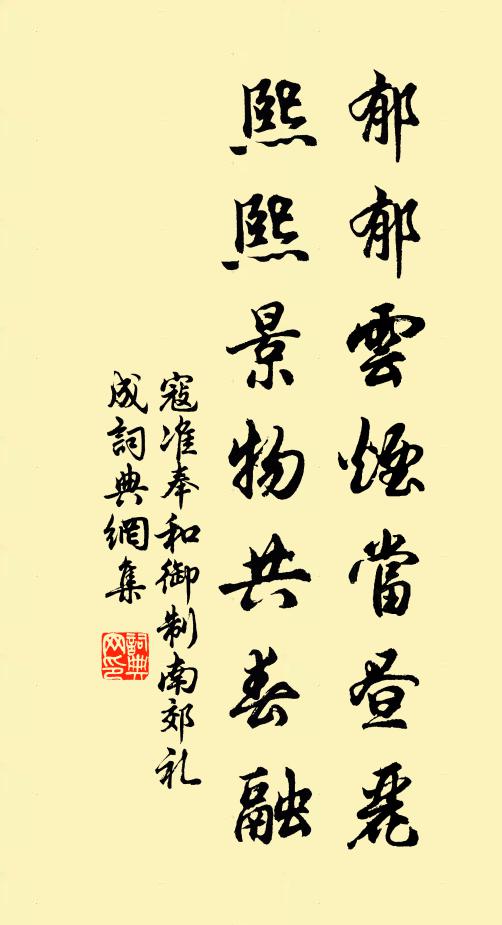 郁郁雲煙當昼麗
熙熙景物共春融
寇准奉和御制南郊礼
成詞典網集
詞典網印